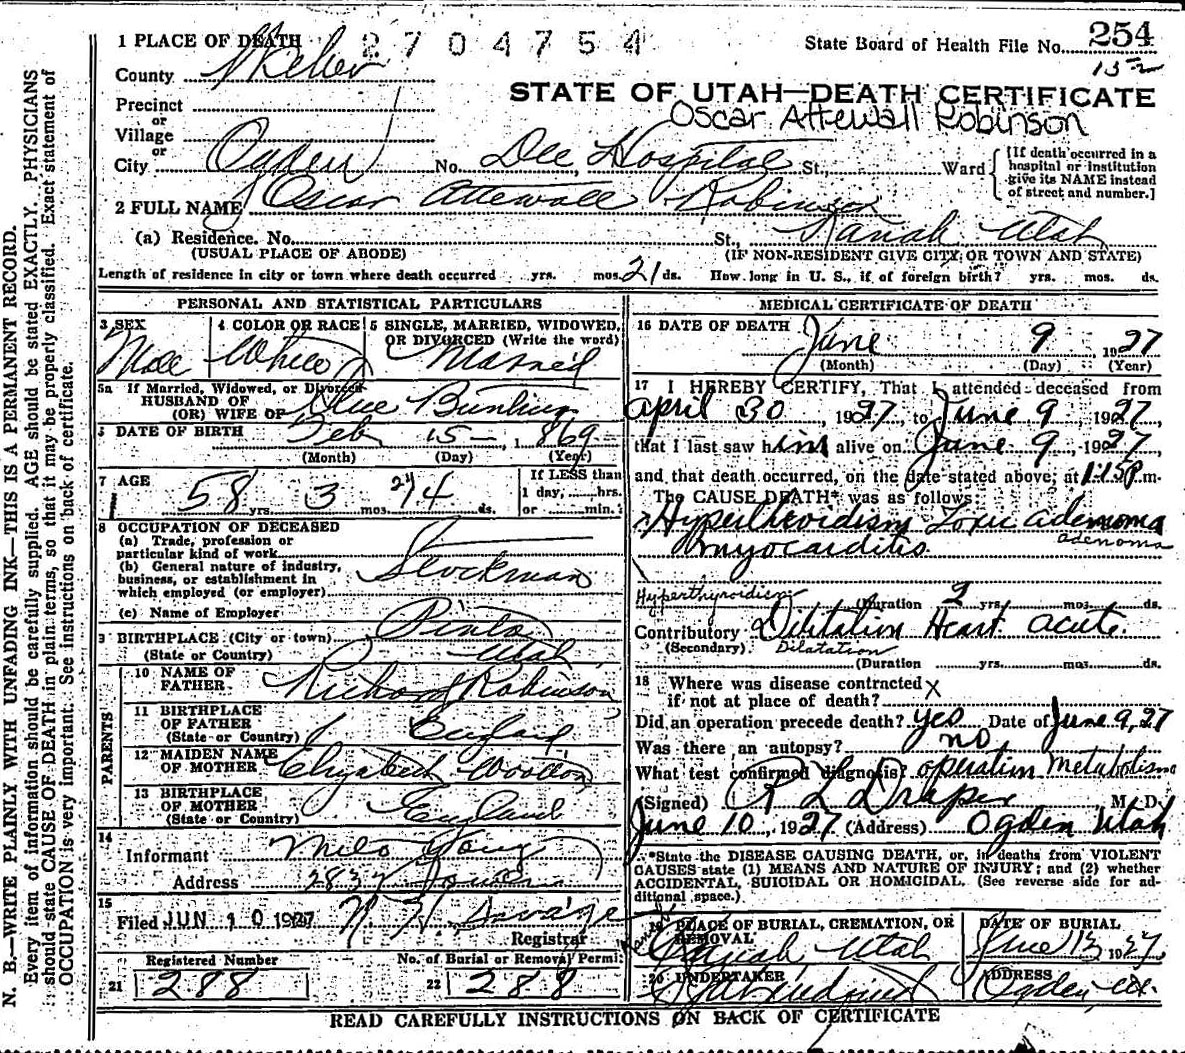 2704754
State Board of Health File No. 254
1 PLACE OF DEATH
County Weber
STATE OF UTAH—DEATH CERTIFICATE
Precinct
or
Oscar Attewall Robinson
Village
or
City Ogden No. Dee Hospital St., Ward
[If death occurred in a hospital or institution give its NAME instead of street and number.]
2 FULL NAME Oscar Attewall Robinson
(a) Residence. No. St., Kanab Utah
(USUAL PLACE OF ABODE) (IF NON-RESIDENT GIVE CITY OR TOWN AND STATE)
Length of residence in city or town where death occurred yrs. mos. 21 ds. How long in U. S., if of foreign birth? yrs. mos. ds.
PERSONAL AND STATISTICAL PARTICULARS
3 SEX 4 COLOR OR RACE 5 SINGLE, MARRIED, WIDOWED, OR DIVORCED (Write the word)
Male White Married
5a If Married, Widowed, or Divorced
HUSBAND OF
(OR) WIFE OF Bunting
DATE OF BIRTH Feb 15 1869
(Month) (Day) (Year)
7 AGE 58 yrs. 3 mos. 24 ds.
If LESS than 1 day, hrs. or min.
8 OCCUPATION OF DECEASED
(a) Trade, profession or particular kind of work
(b) General nature of industry, business, or establishment in which employed (or employer) Stockman
(c) Name of Employer
9 BIRTHPLACE (City or town) Pinto
(State or Country) Utah
PARENTS
10 NAME OF FATHER Richard Robinson
11 BIRTHPLACE OF FATHER
(State or Country) England
12 MAIDEN NAME OF MOTHER Elizabeth Wootton
13 BIRTHPLACE OF MOTHER
(State or Country) England
14
Informant Milo Young
Address
15
Filed JUN 10 1927 Savage
Registrar
Registered Number No. of Burial or Removal Permit
21 288 22 288
MEDICAL CERTIFICATE OF DEATH
16 DATE OF DEATH June 9 1927
(Month) (Day) (Year)
17 I HEREBY CERTIFY, That I attended deceased from
April 30, 1927, to June 9, 1927,
that I last saw him alive on June 9, 1927,
and that death occurred, on the date stated above, at 1:15 P. m.
The CAUSE DEATH* was as follows:
Hyperthyroidism Toxic adenoma
adenoma
myocarditis
Hyperthyroidism
(Duration 2 yrs. mos. ds.
Contributory Dilitation Heart acute.
(Secondary) Dilatation
(Duration yrs. mos. ds.
18 Where was disease contracted
if not at place of death? x
Did an operation precede death? yes Date of June 9, 27
Was there an autopsy? no
What test confirmed diagnosis? operation Metabolism
(Signed) R L Draper M. D.
June 10, 1927 (Address) Ogden Utah
*State the DISEASE CAUSING DEATH, or, in deaths from VIOLENT
CAUSES state (1) MEANS AND NATURE OF INJURY; and (2) whether
ACCIDENTAL, SUICIDAL OR HOMICIDAL. (See reverse side for ad-
ditional space.)
19 PLACE OF BURIAL, CREMATION, OR REMOVAL DATE OF BURIAL
Kanab
Kanab, Utah June 13 1927
20 UNDERTAKER ADDRESS
Ogden, Ut.
READ CAREFULLY INSTRUCTIONS ON BACK OF CERTIFICATE
N. B.—WRITE PLAINLY WITH UNFADING INK—THIS IS A PERMANENT RECORD.
Every item of information should be carefully supplied. AGE should be stated EXACTLY. PHYSICIANS
should state CAUSE OF DEATH in plain terms, so that it may be properly classified. Exact statement of
OCCUPATION is very important. See instructions on back of certificate.